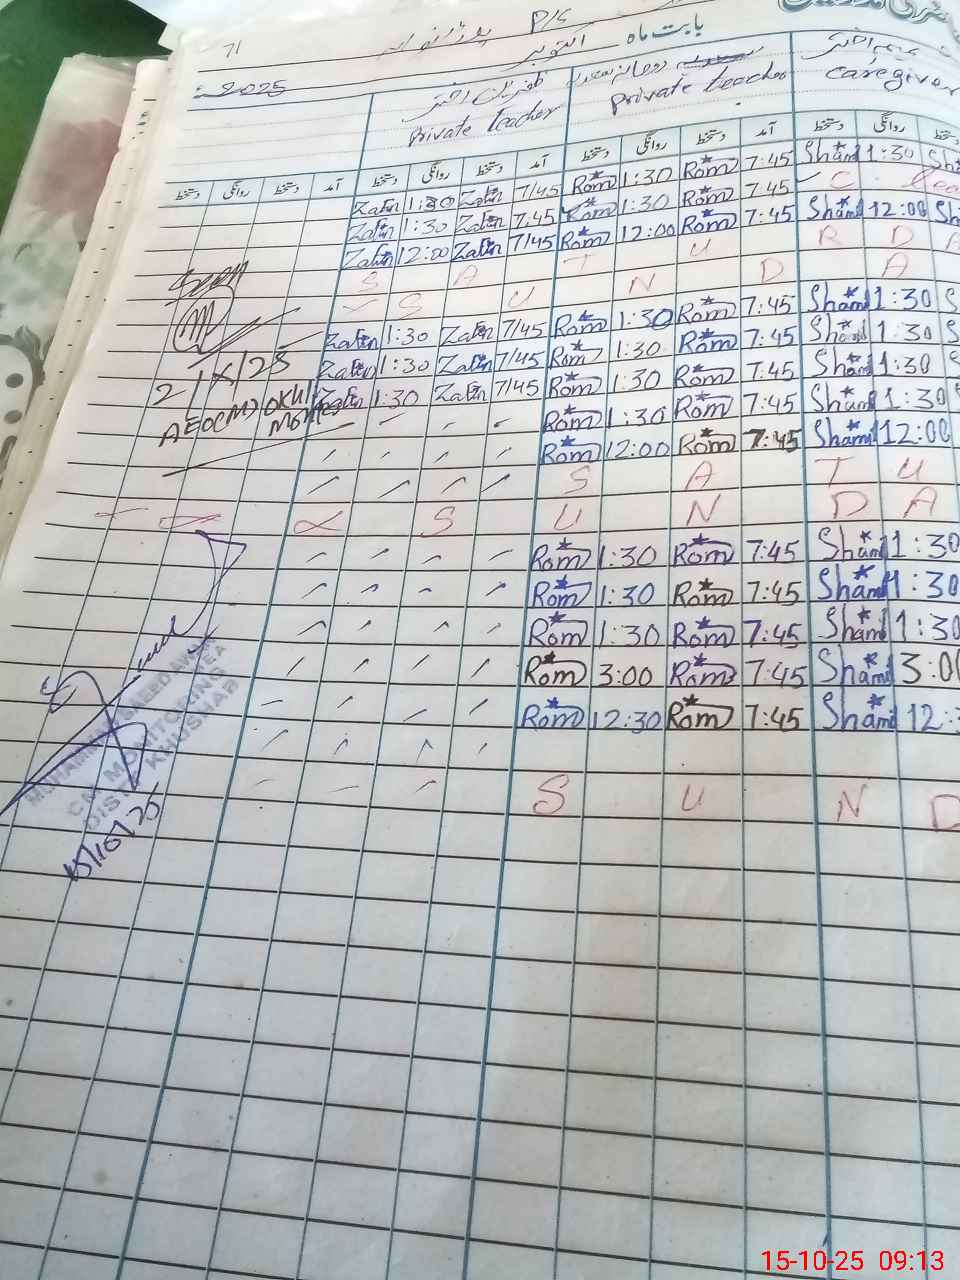 71 P/S
بابت ماہ اکتوبر
2025
ظفران اختر رومانہ سعدیہ شمیم اختر
Private teacher Private teacher caregiver
دستخط روانگی دستخط آمد دستخط روانگی دستخط آمد دستخط روانگی دستخط آمد دستخط روانگی دستخط
Zafrin 1:30 Zafrin 7/45 Rom 1:30 Rom 7:45 Sham 1:30 Sh
Zafrin 1:30 Zafrin 7:45 Rom 1:30 Rom 7:45 C lea
Zafrin 12:00 Zafrin 7/45 Rom 12:00 Rom 7:45 Sham 12:00 Sh
S A T U R D A
S U N D A
Zafrin 1:30 Zafrin 7/45 Rom 1:30 Rom 7:45 Sham 1:30 S
Zafrin 1:30 Zafrin 7/45 Rom 1:30 Rom 7:45 Sham 1:30 S
Zafrin 1:30 Zafrin 7/45 Rom 1:30 Rom 7:45 Sham 1:30 S
Rom 1:30 Rom 7:45 Sham 1:30 S
Rom 12:00 Rom 7:45 Sham 12:00
S A T U
S U N D A
Rom 1:30 Rom 7:45 Sham 1:30
Rom 1:30 Rom 7:45 Sham 1:30
Rom 1:30 Rom 7:45 Sham 1:30
Rom 3:00 Rom 7:45 Sham 3:00
Rom 12:30 Rom 7:45 Sham 12:3
S U N D
2/X/25
AEO(M)
MUHAMMAD SAEED AWAN
CM MONITORING E.A
DIST KHUSHAB
15/10/25
15-10-25 09:13